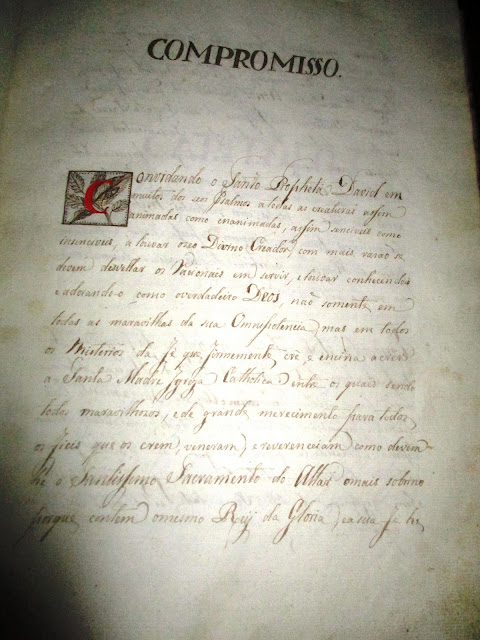 COMPROMISSO.
Convidando o Santo Propheta David em
muitos dos seus Psalmos a todas as creaturas assim
animadas como inanimadas, assim sensiveis como
incenciveis, a louvar oseo Divino Creador, com mais razaõ se
devem desvellar os Racionais em servir, elouvar conhecendo
eadorando-o como overdadeiro Deos, naõ somente em
todas as maravilhas da sua Omnipotencia, mas em todos
os Misterios da fé que firmemente cré, e encina a crer
a Santa Madre Igreja Catholica, entre os quais sendo
todos maravilhozos, e de grande merecimento para todos
os fieis que os crem, veneram, e reverenceiam como devem,
hé o Santissimo Sacramento do Altar omais
porque contem omesmo Rey da Gloria, ea sua fé he